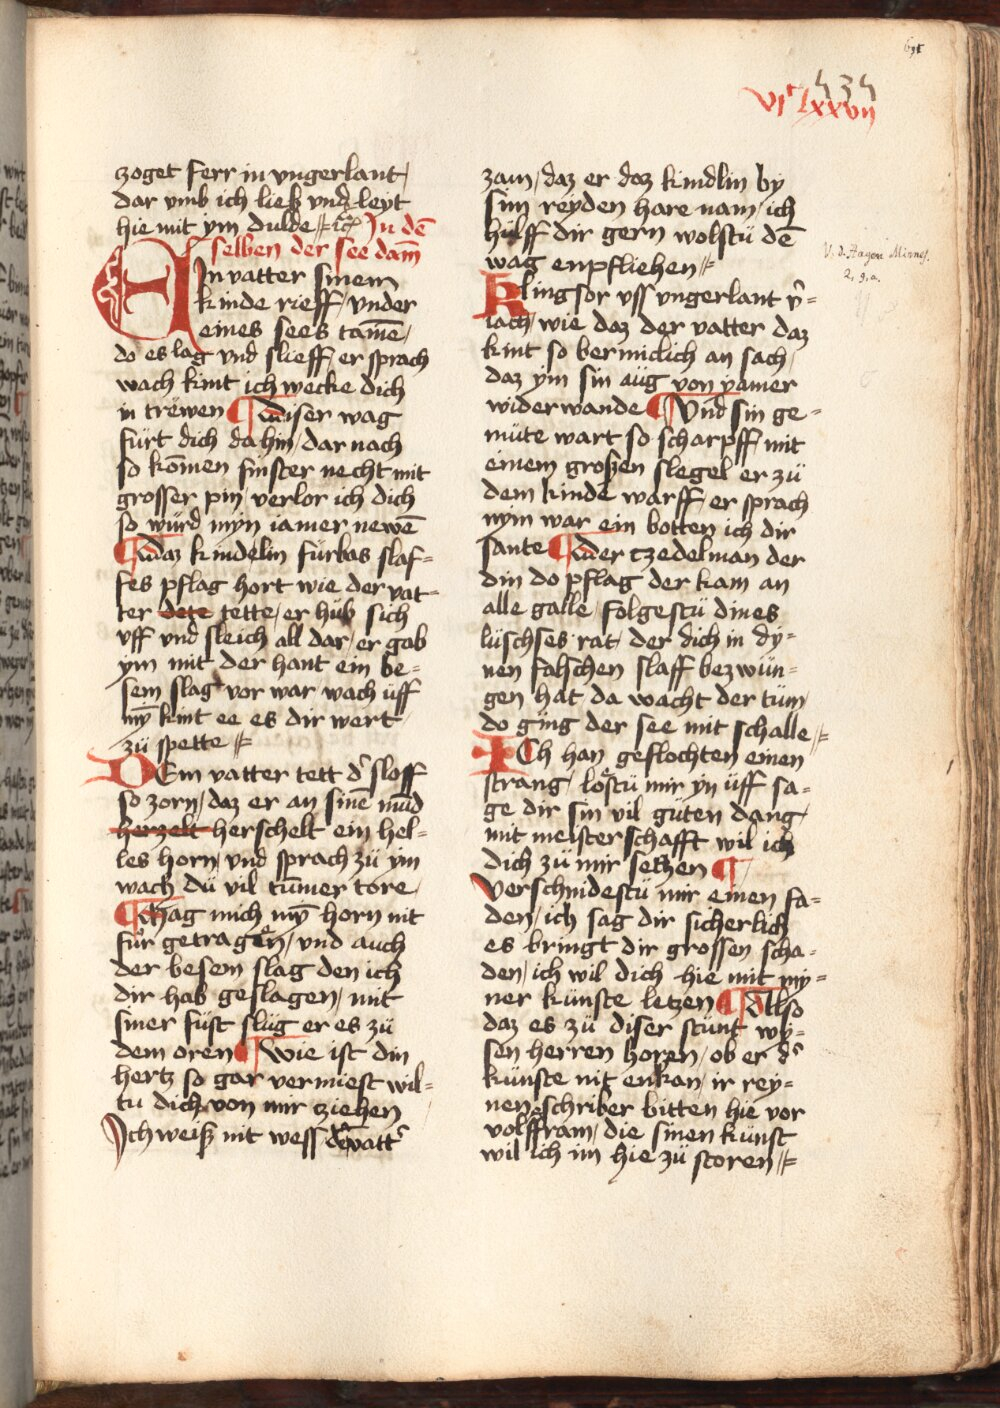 691
434
VIᶜ Lxxvij
zoget ferr in vngerlant /
dar vmb ich ließ vnd leyt
hie mit ym dulde ⫽ ꝛc̄ In dē
selben der see dam̄
EIn vatter sinem
kinde rieff / vnder
eines sees tam̄e /
do es lag vnd slieff / er sprach
wach kint ich wecke dich
in trëwen ¶ diser wag
fürt dich dahin / dar nach
so kom̄en sinster necht mit
grosser pin / verlor ich dich
so würd myn iamer newē
¶ daz kindelin fürbas slaf-
fes pflag hort wie der vat-
ter dete tette / er hüb sich
vff vnd sleich all dar / er gab
ym mit der hant ein be-
sem slag vor war wach üff
mȳ kint ee es dir wert
zü spette ⫽
DEm vatter tett d' sloff
so zorn / daz er an sinē mūd
herzelt herschelt ein hel-
les horn / vnd sprach zü ym
wach dü vil tüm̄er tore /
¶ Mag mich mȳ horn nit
für getragen / vnd auch
der besem slag den ich
dir hab geslagen / mit
siner füst slüg er es zü
dem oren ¶ Wie ist din
hertz so gar vermiest wil-
tu dich von mir ziehen
Ich weiß nit wess vatt'
zam / daz er daz kindlin by
sim reyden hare nam / ich
hülff dir gern wolstü dē
wag enpfliehen ⫽
V. d. Hagen Minnes.
2, 9. a.
Klingsor vss vngerlant v'-
iach / wie daz der vatter daz
kint so bermiclich an sach /
daz ym sin aüg von yamer
widerwande ¶ Vnd sin ge-
müte wart so scharpff / mit
einem großen slegel er zü
dem kinde warff / er sprach
nym war ein botten ich dir
sante ¶ der tzedelman der
din do pflag der kam an
alle galle / folgestü dines
lüschses rat / der dich in dy-
nen falschen slaff bezwün-
gen hat / da wacht der tüm
do ging der see mit schalle ⫽
ICh han geflochten einen
strang / lostü mir yn üff sa-
ge dir sin vil güten dang /
mit meisterschafft wil ich
dich zü mir setzen ¶
verschnidestü mir einen fa-
den / ich sag dir sicherlich
es bringt dir grossen scha-
den / ich wil dich hie mit my-
ner künste letzen ¶ Also
daz es zü diser stünt wy-
sen herren horen / ob er d'
künste nit enkan / ir rey-
nen schriber bitten hie vor
volffram / die sinen künst
wil ich im hie zü storen ⫽